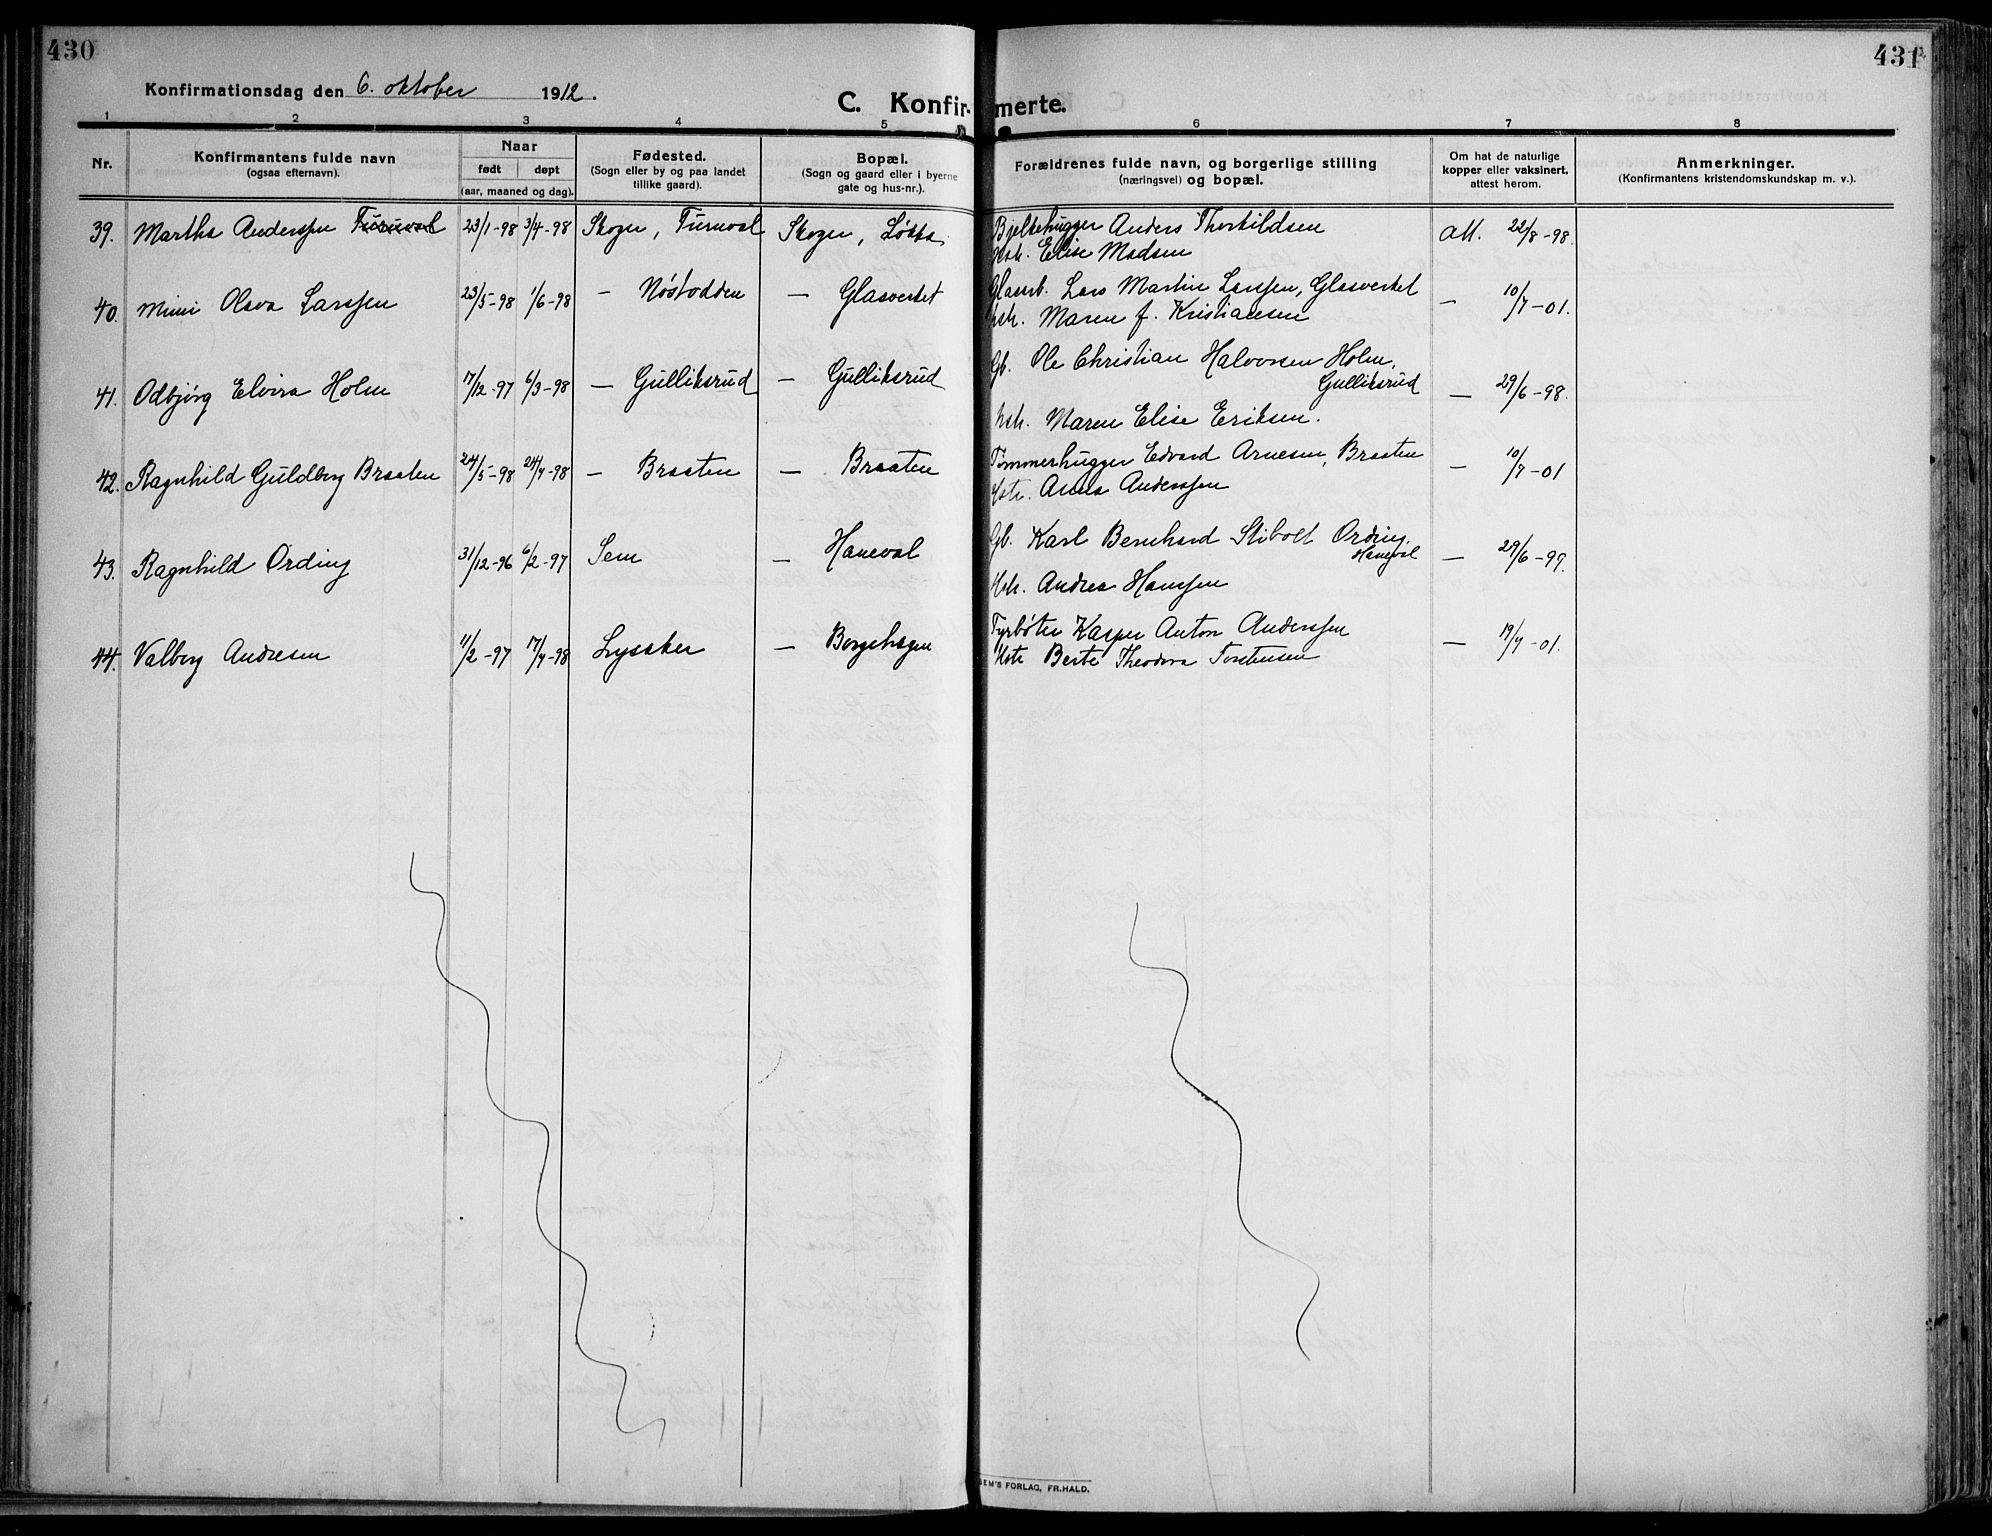 430
431
Konfirmationsdag den 6. oktober 1912.
C. Konfir- merte.
1 2 3 4 5 6 7 8
Nr.
Konfirmantens fulde navn
(ogsaa efternavn).
Naar
født døpt
(aar, maaned og dag).
Fødested.
(Sogn eller by og paa landet
tillike gaard).
Bopæl.
(Sogn og gaard eller i byerne
gate og hus-nr.).
Forældrenes fulde navn, og borgerlige stilling
(næringsvei) og bopæl.
Om hat de naturlige
kopper eller vaksinert,
attest herom.
Anmerkninger.
(Konfirmantens kristendomskundskap m. v.).
39. Martha Anderssen Furuval 23/1-98 3/4-98 Skoger, Furuval Skoger, Løkka Bjelkehugger Anders Thorkildsen att. 22/8-98.
Hstr. Elise Madsen
40. Mimi Olava Larssen 23/5-98 1/6-98 — Nøstodden — Glasverket Glasarb. Lars Martin Larssen, Glasverket — 10/7-01.
hstr. Maren f. Kristiansen
41. Odbjørg Elvira Holm 17/12-97 6/3-98 — Gulliksrud — Gulliksrud Gb. Ole Christian Halvorsen Holm,
Gulliksrud — 29/6-98.
hstr. Maren Elise Eriksen.
42. Ragnhild Guldborg Braaten 24/5-98 24/7-98 — Braaten — Braaten Tømmerhugger Edvard Arnesen, Braaten — 10/7-01
Hstr. Anna Anderssen
43. Ragnhild Ording 31/12-96 6/2-97 Sem — Haneval Gb. Karl Bernhard Stibolt Ording,
Haneval — 29/6-99.
Hstr. Andrea Hanssen
44. Valborg Andresen 11/2-97 17/7-98 Lysaker — Borgehagen Fyrbøter Kasper Anton Anderssen — 19/7-01.
Hstr Berte Theodora Torstensen
SEM'S FORLAG, FR.HALD.